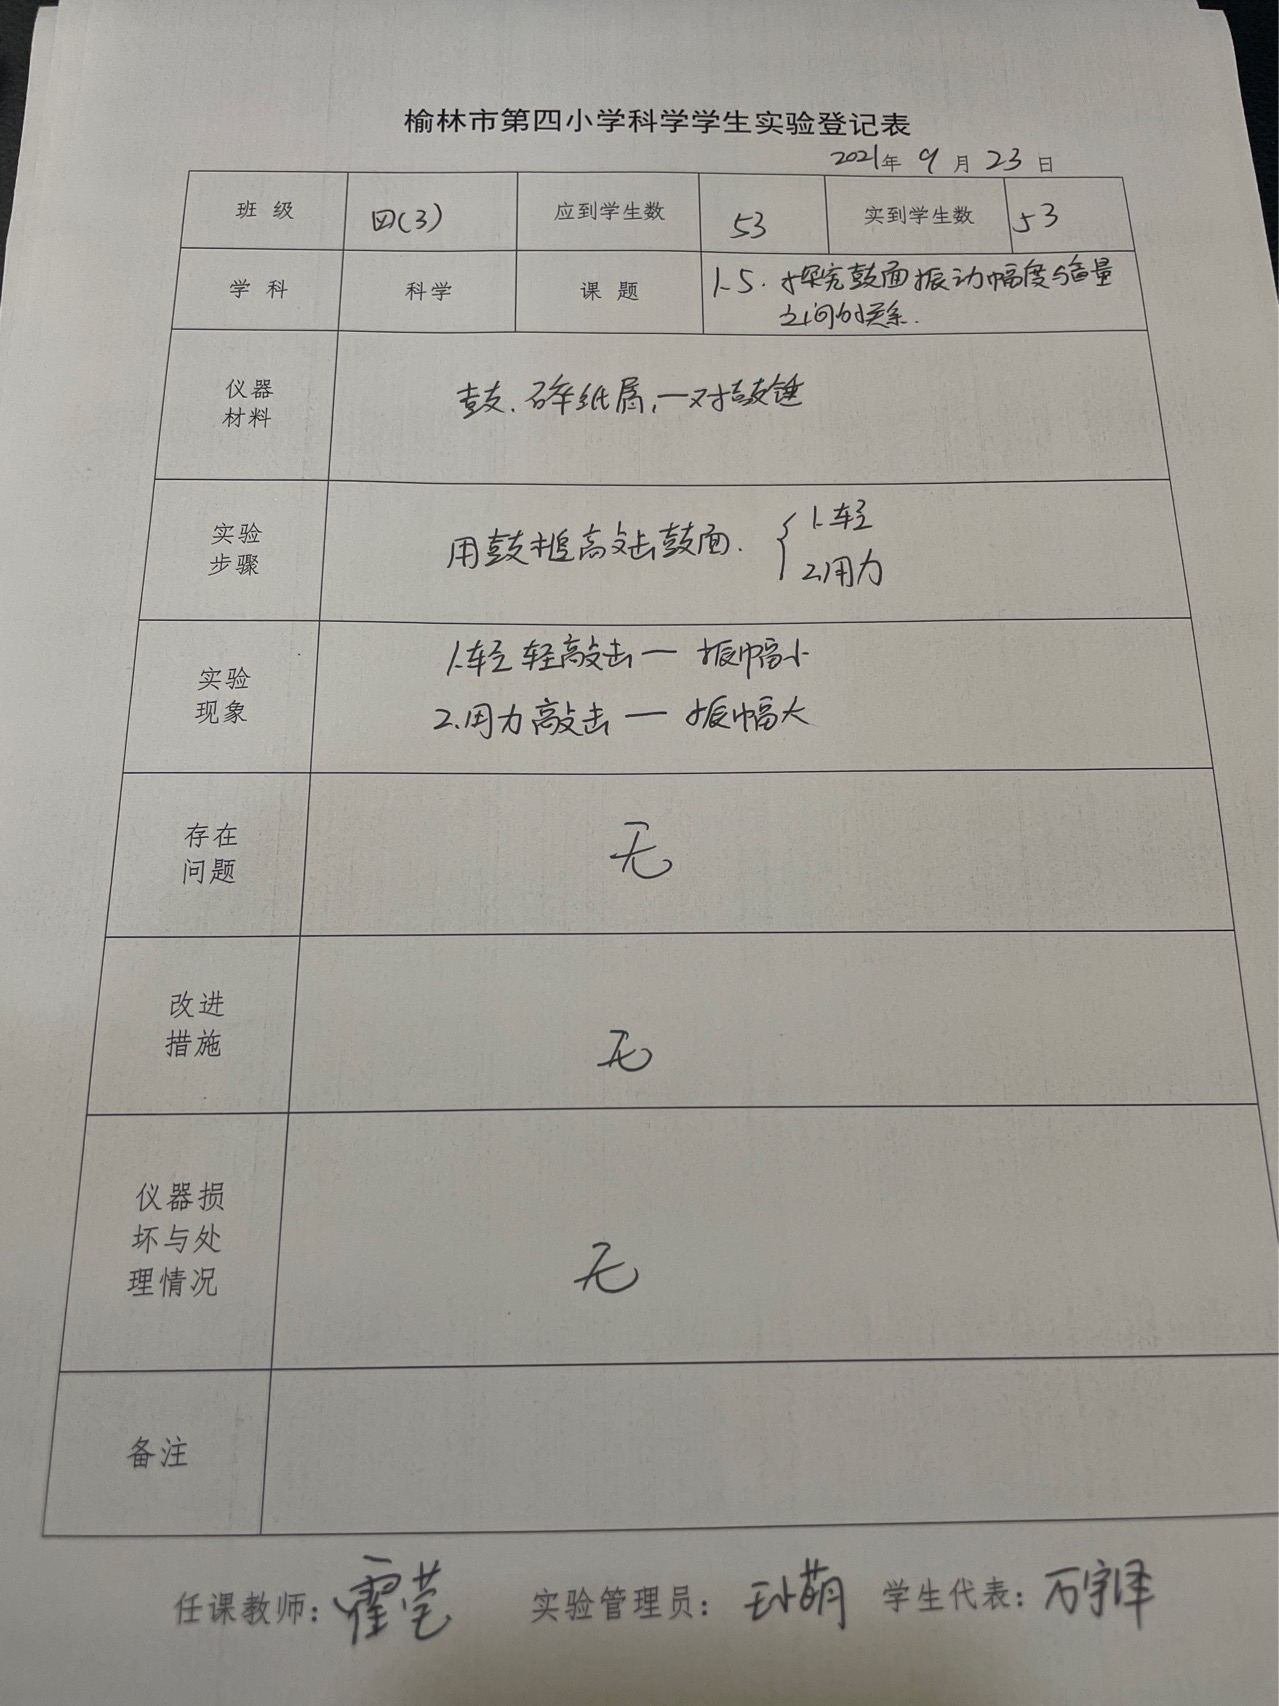 榆林市第四小学科学学生实验登记表
2021年 9 月 23 日
班 级 四(3) 应到学生数 53 实到学生数 53
学 科 科学 课 题 1.5.探究鼓面振动幅度与音量
之间的关系.
仪器
材料
鼓.碎纸屑,一对鼓锤
实验
步骤
用鼓槌敲击鼓面.
1.轻
2.用力
实验
现象
1.轻轻敲击一振幅小
2.用力敲击一振幅大
存在
问题
无
改进
措施
无
仪器损
坏与处
理情况
无
备注
任课教师: 霍莹 实验管理员: 王小萌 学生代表: 万宇泽